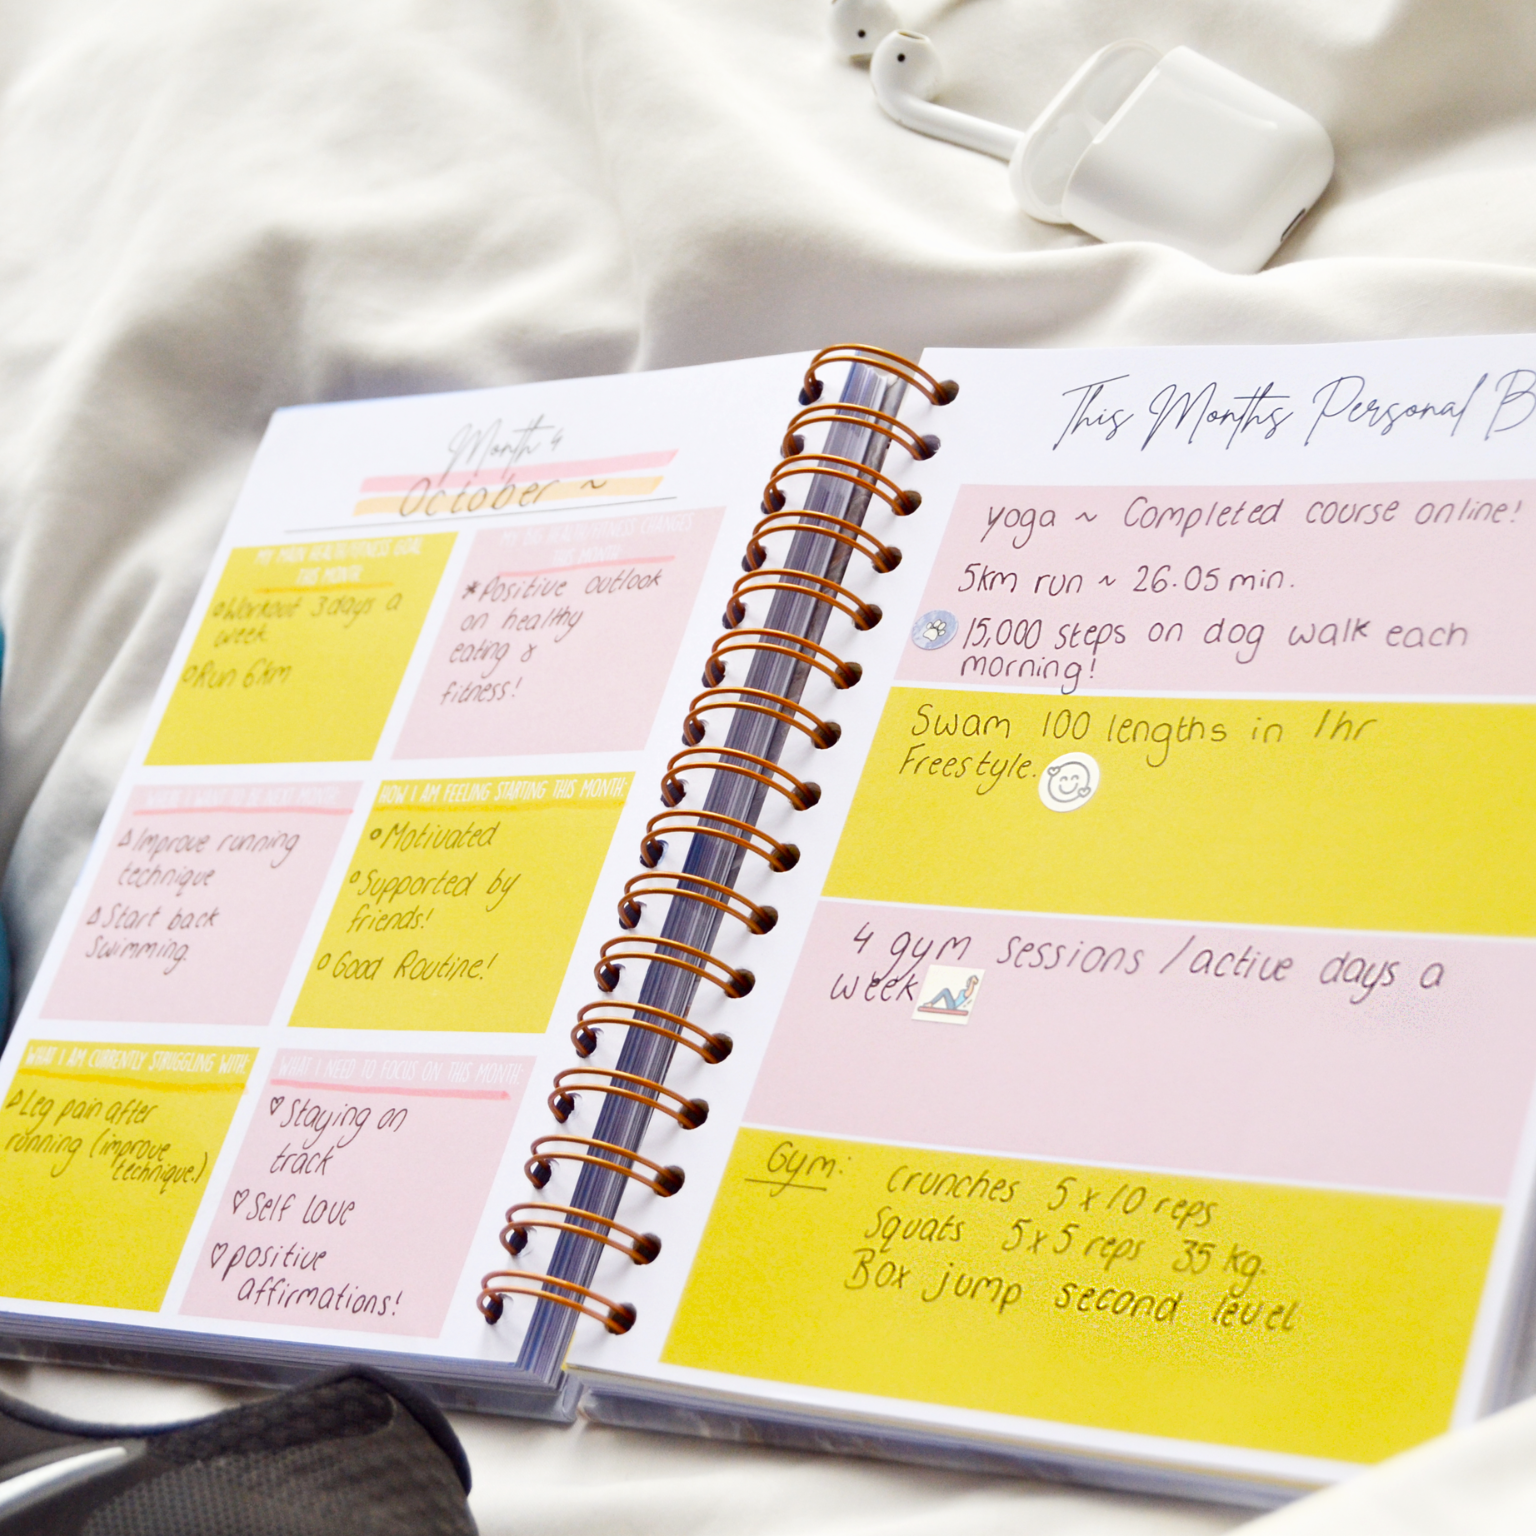 Month 4
October ~
MY MAIN HEALTH/FITNESS GOAL
THIS MONTH
Workout 3 days a
week
Run 6km
MY BIG HEALTH/FITNESS CHANGES
THIS MONTH
* Positive outlook
on healthy
eating &
fitness!
NEXT MONTH
Improve running
technique
Start back
Swimming.
HOW I AM FEELING STARTING THIS MONTH:
Motivated
Supported by
friends!
Good Routine!
WHAT I AM CURRENTLY STRUGGLING WITH:
Leg pain after
running (improve
technique.)
WHAT I NEED TO FOCUS ON THIS MONTH:
♡ Staying on
track
♡ Self love
♡ positive
affirmations!
This Months Personal B
yoga ~ Completed course online!
5km run ~ 26.05 min.
15,000 steps on dog walk each
morning!
Swam 100 lengths in 1hr
Freestyle.
4 gym sessions / active days a
week
Gym: Crunches 5 x 10 reps
Squats 5 x 5 reps 35 kg.
Box jump second level